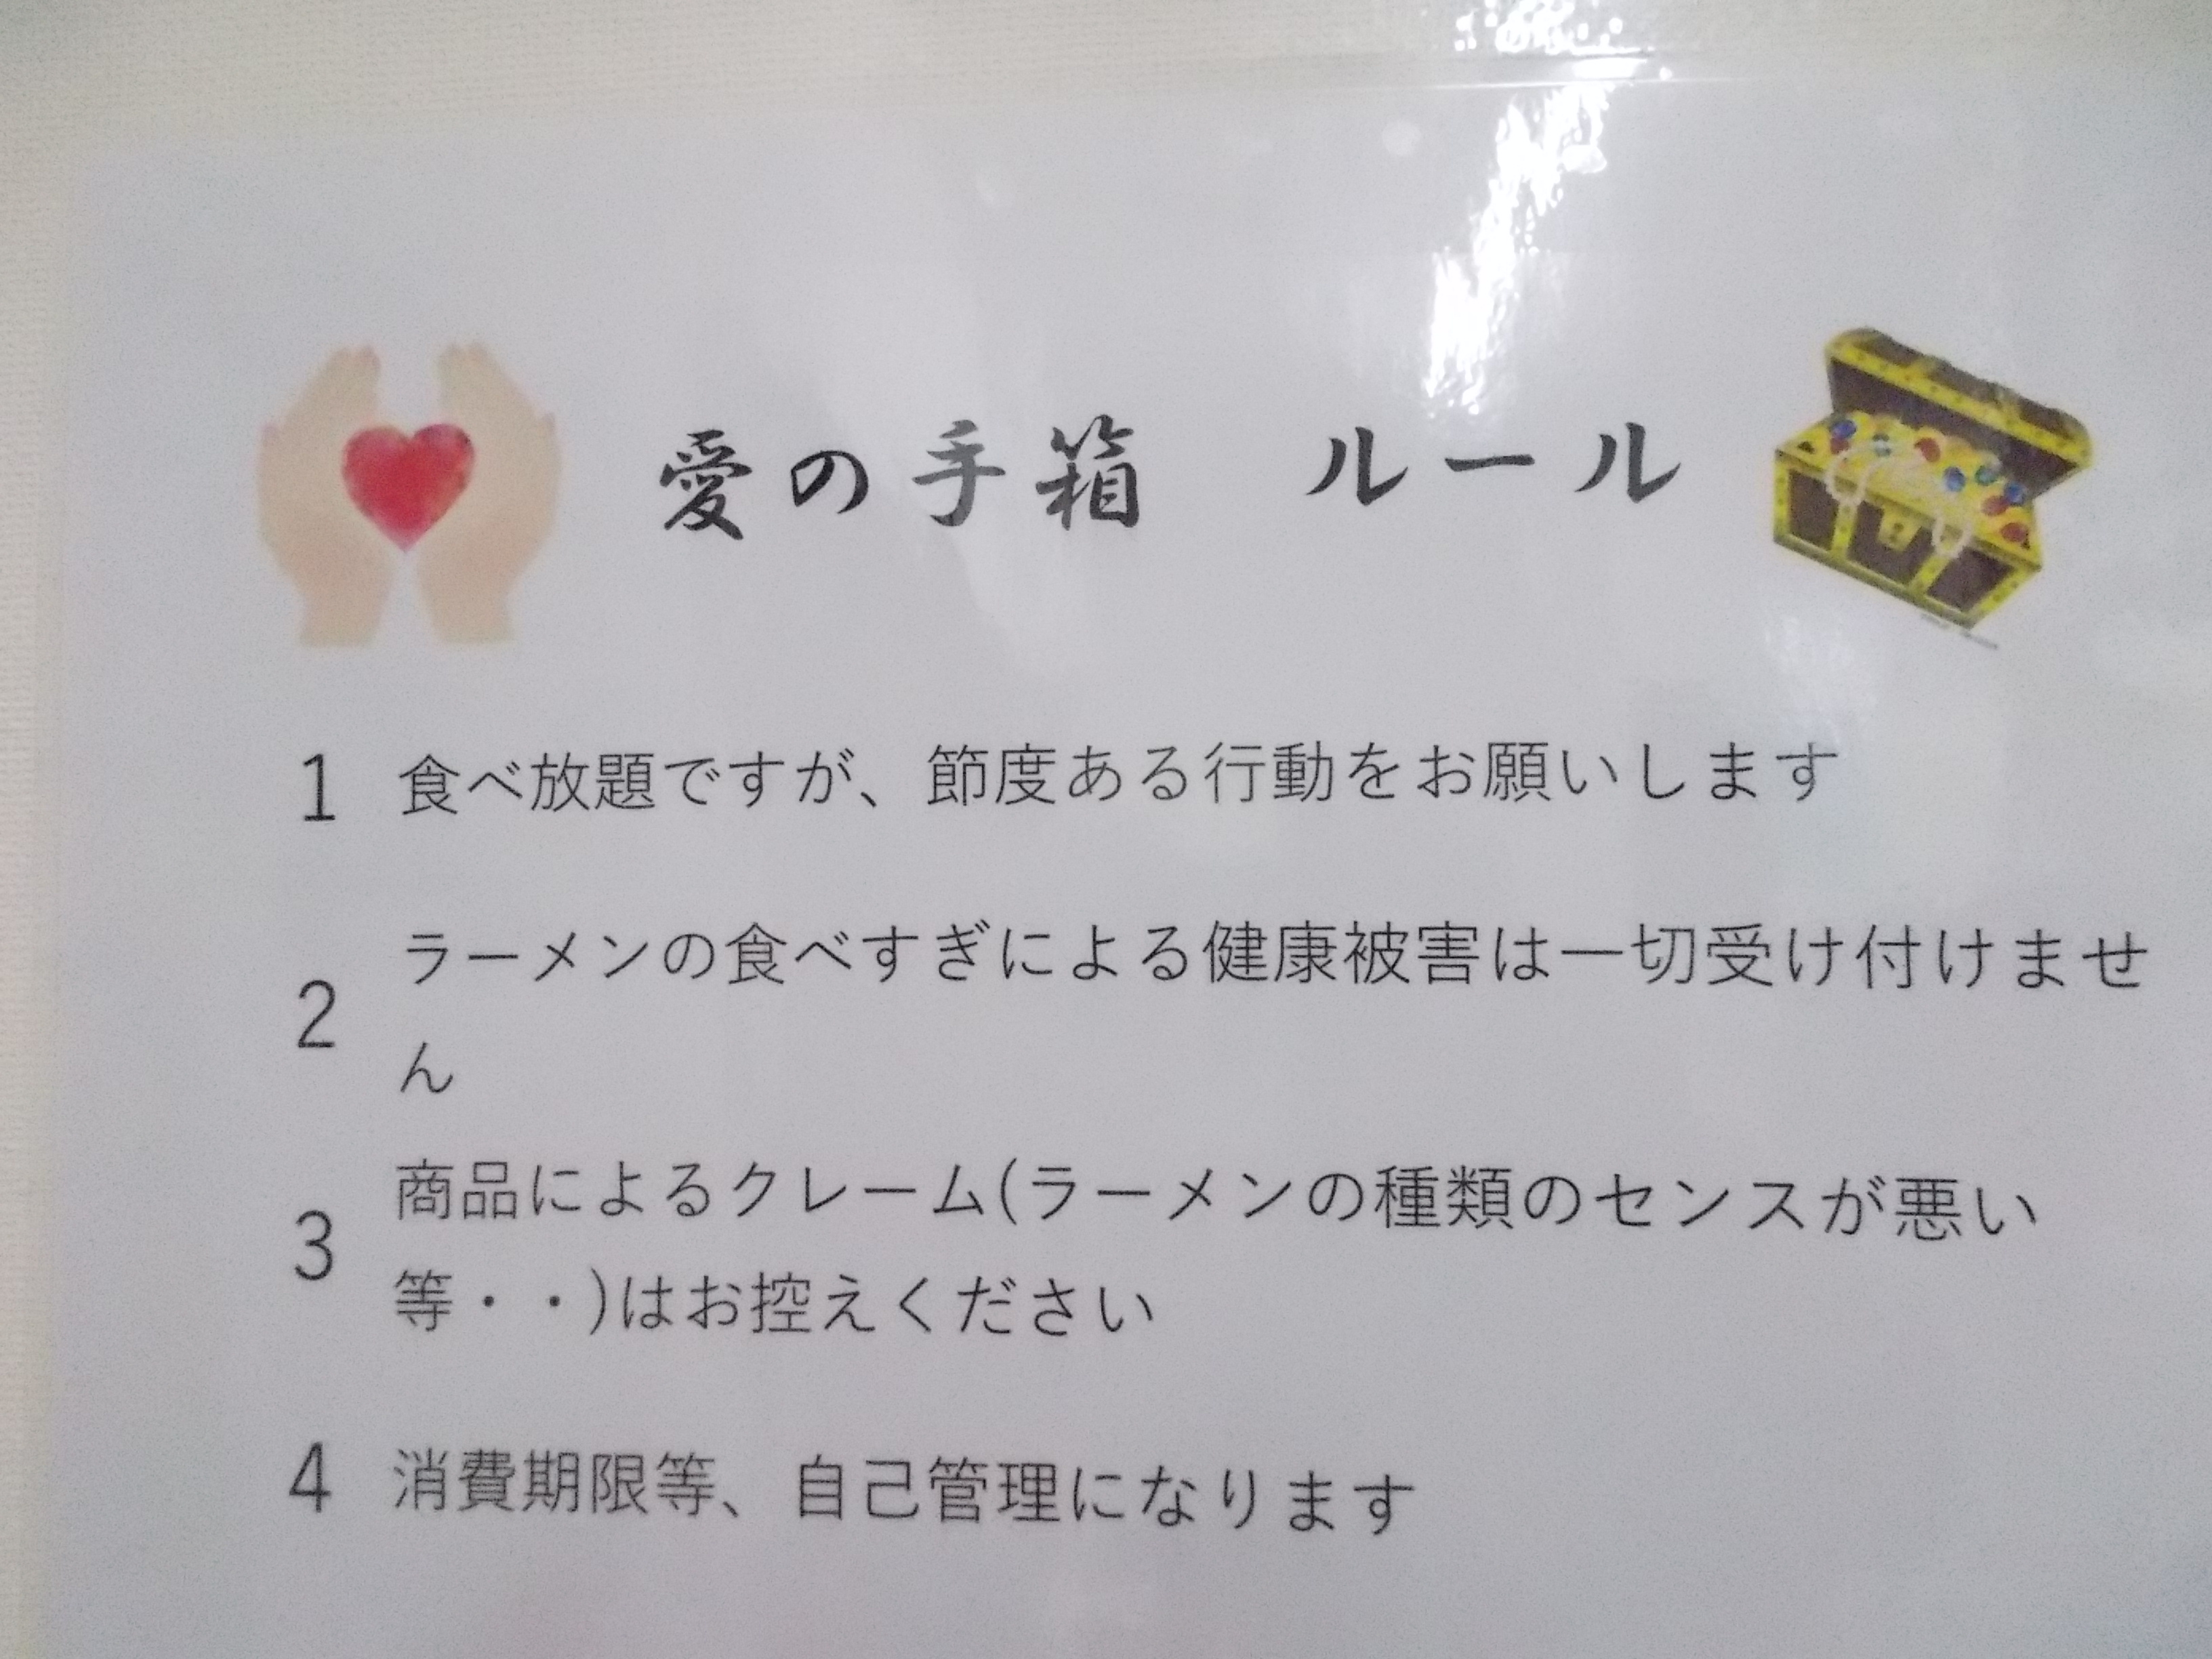 愛の手箱　ルール
1 食べ放題ですが、節度ある行動をお願いします
2 ラーメンの食べすぎによる健康被害は一切受け付けませ
ん
3 商品によるクレーム(ラーメンの種類のセンスが悪い
等・・)はお控えください
4 消費期限等、自己管理になります